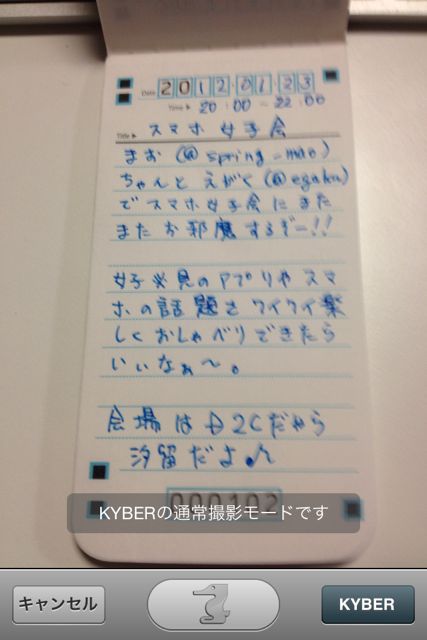 Date 2012.01.23
Time▶ 20:00 - 22:00
Title▶ スマホ女子会
まお (@spring_mao)
ちゃんと えがく (@egaku)
でスマホ女子会にまた
またお邪魔するぞー!!
女子必見のアプリやスマ
ホの話題をワイワイ楽
しくおしゃべりできたら
いいなぁ〜。
会場はD2Cだから
汐留だよ♪
000102
KYBERの通常撮影モードです
キャンセル
KYBER